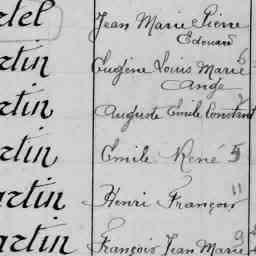 rtel Jean Marie Pierre
Edouard
rtin Eugène Louis Marie 6
Ange
rtin Auguste Emile Constant 7
rtin Emile René 5
artin Henri François 11
artin François Jean Marie 9